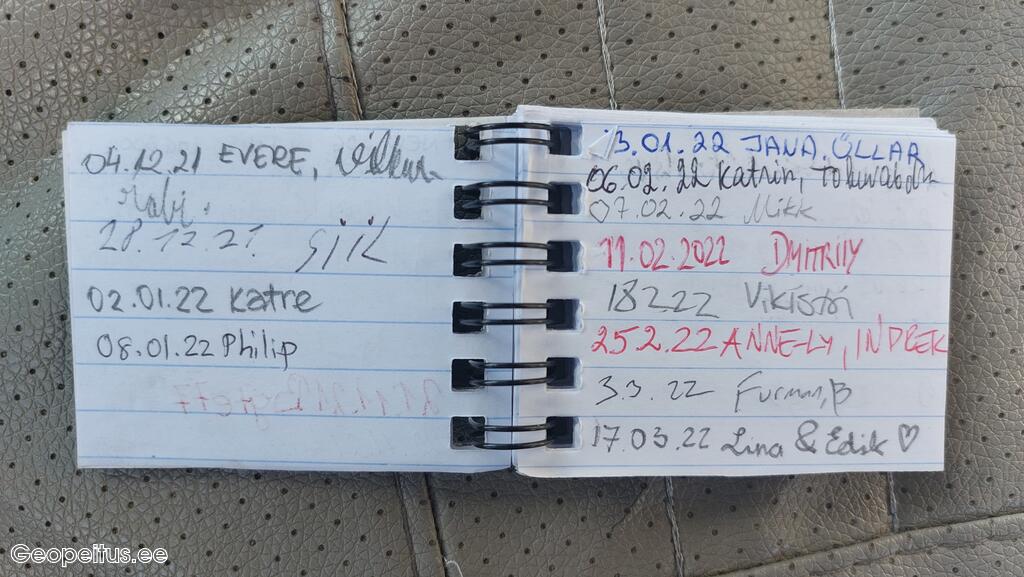 04.12.21 EVERE,
28.12.21 SIIL
02.01.22 Katre
08.01.22 Philip
3.01.22 JANA, ÜLLAR
06.02.22 Katrin,
07.02.22 Mikk
11.02.2022 DMITRIIY
18.2.22
25.2.22 ANNE-LY, INDREK
3.3.22
17.03.22 Lina & Edik ♡
Geopeitus.ee